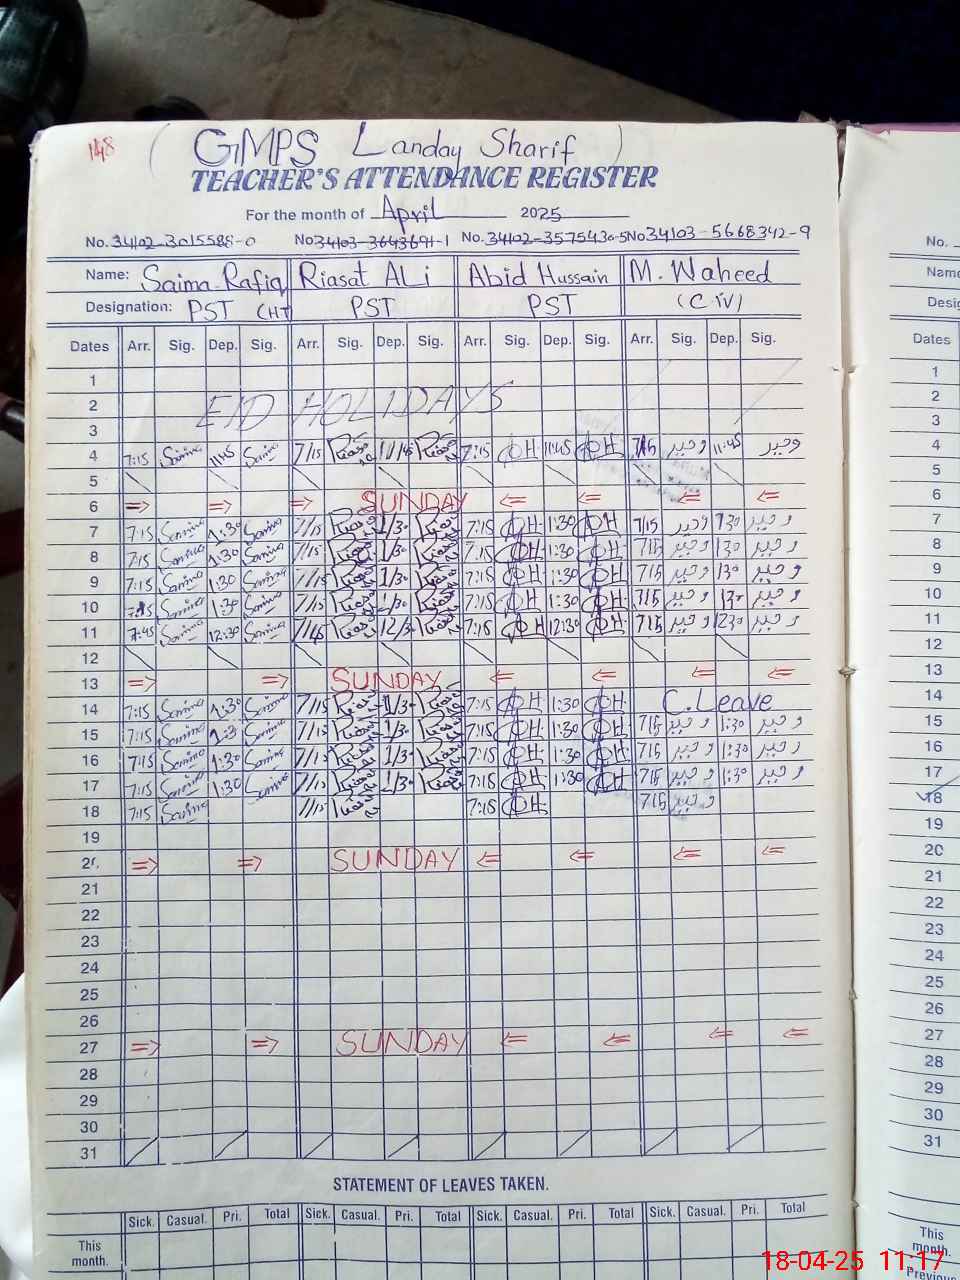 148
( GMPS Landay Sharif )
TEACHER'S ATTENDANCE REGISTER
For the month of April 2025
No. 34102-3015588-0 No 34103-3643691-1 No. 34102-3575430-5 No 34103-5668342-9
Name: Saima Rafiq Riasat ALi Abid Hussain M. Waheed
Designation: PST (HT PST PST (C iV)
Dates Arr. Sig. Dep. Sig. Arr. Sig. Dep. Sig. Arr. Sig. Dep. Sig. Arr. Sig. Dep. Sig.
1
2 EID HOLIDAYS
3
4 7:15 Saima 11:45 Saima 7/15 11/45 7:15 11:45 7:15 وحید 11:45 وحید
5
6 ⇒ ⇒ ⇒ SUNDAY ⇐ ⇐ ⇐ ⇐
7 7:15 Saima 1:30 Saima 7/15 1/30 7:15 1:30 7/15 وحید 130 وحید
8 7:15 Saima 1:30 Saima 7/15 1/30 7:15 1:30 715 وحید 130 وحید
9 7:15 Saima 1:30 Saima 7/15 1/30 7:15 1:30 715 وحید 130 وحید
10 7:15 Saima 1:30 Saima 7/15 1/30 7:15 1:30 715 وحید 130 وحید
11 7:45 Saima 12:30 Saima 7/45 12/30 7:15 12:30 715 وحید 1230 وحید
12
13 ⇒ ⇒ SUNDAY ⇐ ⇐ ⇐ ⇐
14 7:15 Saima 1:30 Saima 7/15 1/30 7:15 1:30 C.Leave
15 7:15 Saima 1:3 Saima 7/15 1/30 7:15 1:30 715 وحید 1:30 وحید
16 7:15 Saima 1:30 Saima 7/15 1/30 7:15 1:30 715 وحید 1:30 وحید
17 7:15 Saima 1:30 Saima 7/15 1/30 7:15 1:30 715 وحید 1:30 وحید
18 7:15 Saima 7/15 7:15 715 وحید
19
20 ⇒ ⇒ SUNDAY ⇐ ⇐ ⇐ ⇐
21
22
23
24
25
26
27 ⇒ ⇒ SUNDAY ⇐ ⇐ ⇐ ⇐
28
29
30
31
STATEMENT OF LEAVES TAKEN.
Sick. Casual. Pri. Total Sick. Casual. Pri. Total Sick. Casual. Pri. Total Sick. Casual. Pri. Total
This
month.
No.
Name
Desig
Dates
1
2
3
4
5
6
7
8
9
10
11
12
13
14
15
16
17
18
19
20
21
22
23
24
25
26
27
28
29
30
31
This
month.
Previous
18-04-25 11:17